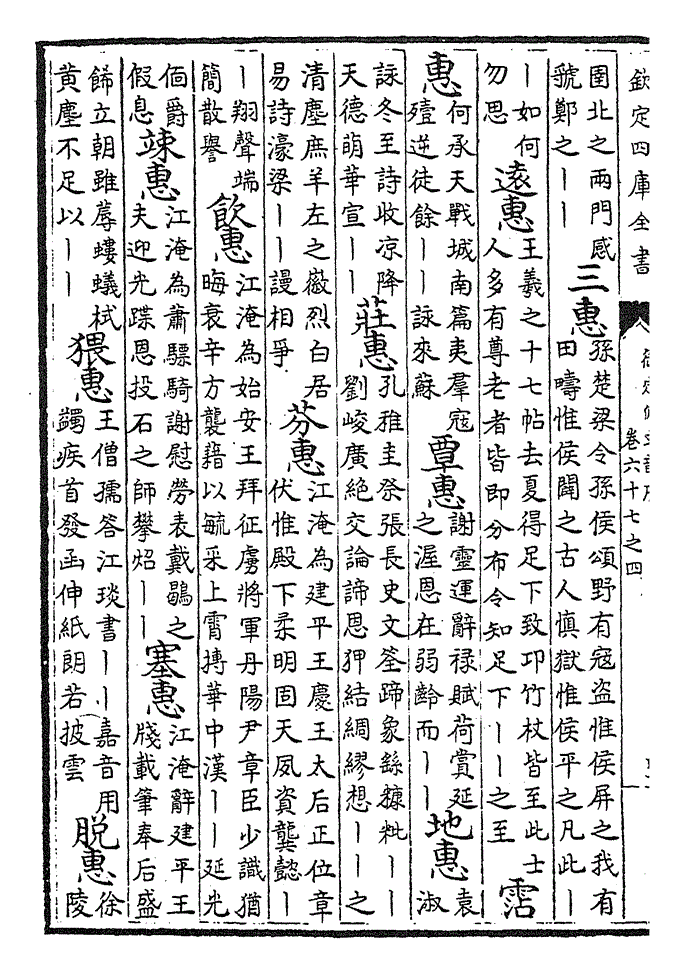 欽定四庫全書
卷六十七之四
圉北之兩門感
號鄭之｜｜
三惠
孫楚梁令孫侯頌野有寇盜惟侯屏之我有
田疇惟侯闢之古人慎獄惟侯平之凡此｜
｜如何
勿思
逺惠
王羲之十七帖去夏得足下致邛竹杖皆至此士
人多有尊老者皆即分布令知足下｜｜之至
霑
惠
何承天戰城南篇夷羣寇
殪逆徒餘｜｜詠來蘇
覃惠
謝靈運辭禄賦荷賞延
之渥恩在弱齡而｜｜
地惠
袁
淑
詠冬至詩收凉降
天德萌華宣｜｜
莊惠
孔雅圭祭張長史文筌蹄象繇糠粃｜｜
劉峻廣絶交論諦恩狎結綢繆想｜｜之
清塵庶羊左之徽烈白居
易詩濠梁｜｜謾相爭
芬惠
江淹為建平王慶王太后正位章
伏惟殿下柔明固天夙資龔懿｜
｜翔聲端
簡散譽
飲惠
江淹為始安王拜征虜將軍丹陽尹章臣少識猶
晦衰辛方襲藉以毓采上霄摶華中漢｜｜延光
佪爵
假息
竦惠
江淹為蕭驃騎謝慰勞表戴鶡之
夫迎光蹀恩投石之師攀炤｜｜
塞惠
江淹辭建平王
牋載筆奉后盛
餙立朝雖蓐螻蟻栻
黄塵不足以｜｜
猥惠
王僧孺答江琰書｜｜嘉音用
蠲疾首發函伸紙朗若披雲
脱惠
徐
陵